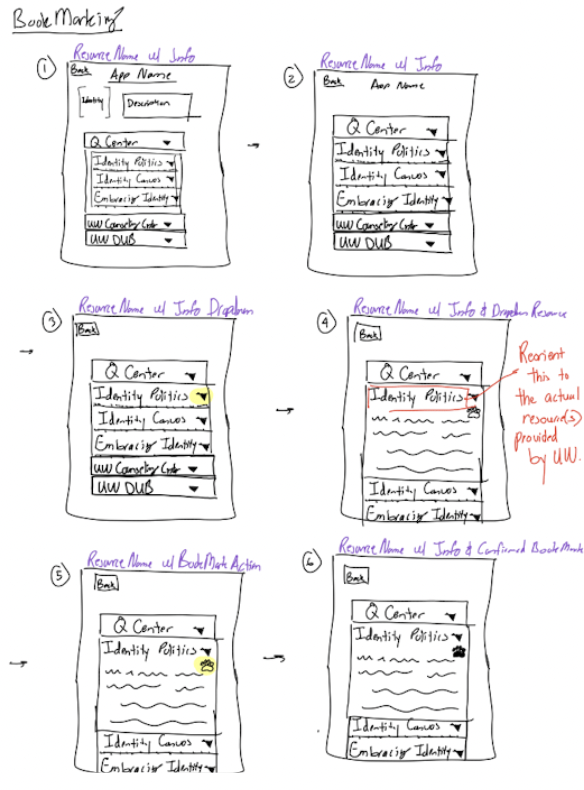 BookMarking
Resource Name w/ Info
1
Back
App Name
Identity
Description
Q Center
Identity Politics
Identity Canvos
Embracing Identity
UW Counseling Cntr
UW DUB
Resource Name w/ Info
2
Back
App Name
Q Center
Identity Politics
Identity Canvos
Embracing Identity
UW Counseling Cntr
UW DUB
Resource Name w/ Info Dropdown
3
Back
Q Center
Identity Politics
Identity Canvos
Embracing Identity
UW Counseling Cntr
UW DUB
Resource Name w/ Info & Dropdown Resource
4
Back
Q Center
Identity Politics
Identity Canvos
Embracing Identity
Reorient
this to
the actual
resource(s)
provided
by UW.
Resource Name w/ BookMark Action
5
Back
Q Center
Identity Politics
Identity Canvos
Embracing Identity
Resource Name w/ Info & Confirmed BookMark
6
Back
Q Center
Identity Politics
Identity Canvos
Embracing Identity